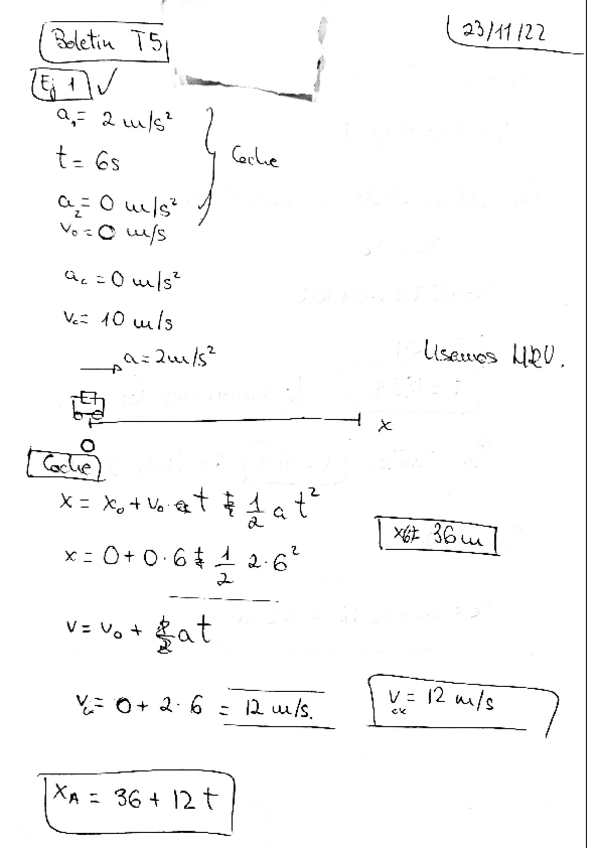 Boletin T5
23/11/22
Ej 1 ✓
a₁ = 2 m/s²
t = 6s
Coche
a₂ = 0 m/s²
v₀ = 0 m/s
a_c = 0 m/s²
v_c = 10 m/s
a = 2 m/s²
Usamos MRU.
x
O
Coche
x = x₀ + v₀ t + 1/2 a t²
x = 0 + 0 · 6 + 1/2 2 · 6²
= 36 m
v = v₀ + at
= 0 + 2 · 6 = 12 m/s.
= 12 m/s
x_A = 36 + 12 t